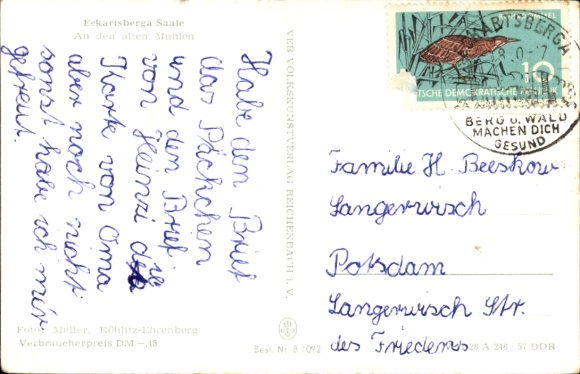 Eckartsberga Saale
An den alten Mühlen
Habe den Brief
das Päckchen
und den Brief
von Heinzi die
Karte von Oma
aber noch nicht
sonst habe ich mir
gefreut.
Foto: Müller, Böhlitz-Ehrenberg
Verbraucherpreis DM —,15
VEB VOLKSKUNSTVERLAG REICHENBACH i. V.
Best. Nr. B 1092
10
DEUTSCHE DEMOKRATISCHE REPUBLIK
ECKARTSBERGA
BERG u. WALD
MACHEN DICH
GESUND
Familie H. Beeskow
Langerwisch
Potsdam
Langerwisch Str.
des Friedens
28 A 246/57 DDR